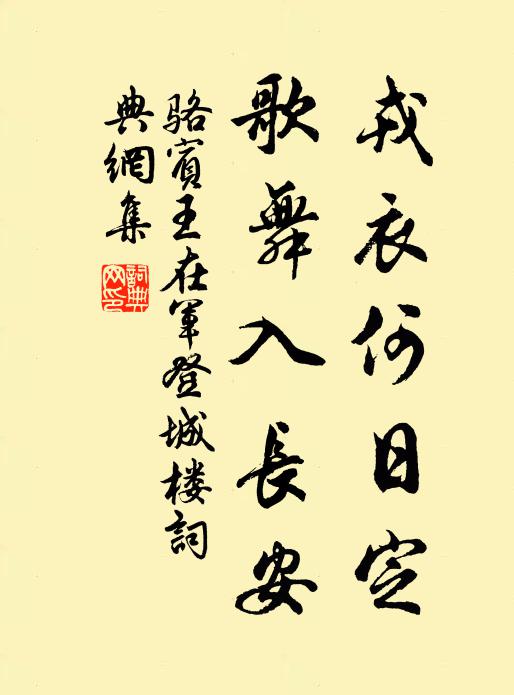 戎衣何日定
歌舞入長安
駱賓王在軍登城楼詞
典網集
詞典网印